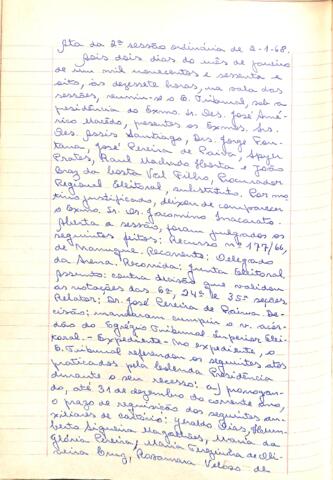 Ata da 2ª sessão ordinária de 2-1-68.
Aos dois dias do mês de janeiro
de um mil novecentos e sessenta e
oito, às dezessete horas, na sala das
sessões, reuniu-se o E. Tribunal, sob a
presidência do Exmo. Sr. Des. José Amé-
rico Macêdo, presentes os Exmos. Srs.
Des. Assis Santiago, Drs. Jorge Fon-
tana, José Pereira de Paiva,
Prates, Raul Machado Horta e João
Braz da Costa Val Filho, Procurador
Regional Eleitoral, substituto. Por mo
tivo justificado, deixou de comparecer
o Exmo. Sr. Dr. Jacomino Inacarato.
Aberta a sessão, foram julgados os
seguintes feitos: Recurso nº 177/66,
de Nanuque. Recorrente: Delegado
da Arena. Recorrida: Junta Eleitoral
Assunto: contra decisão que validou
as votações das 6ª, 24ª e 35ª seções.
Relator: Dr. José Pereira de Paiva. De-
cisão: mandaram cumprir o v. acór-
dão do Egrégio Tribunal Superior Elei-
toral. - Expediente - No expediente, o
E. Tribunal referendou os seguintes atos
praticados pela Presidência
durante o seu recesso: a) prorrogan-
do, até 31 de dezembro do corrente ano,
o prazo de requisição dos seguintes au-
xiliares de cartório: Geraldo Dias, Hum-
berto Siqueira Magalhães, Maria da
Glória Pereira, Maria Terezinha de Oli-
veira Cruz, Rosamara Veloso de